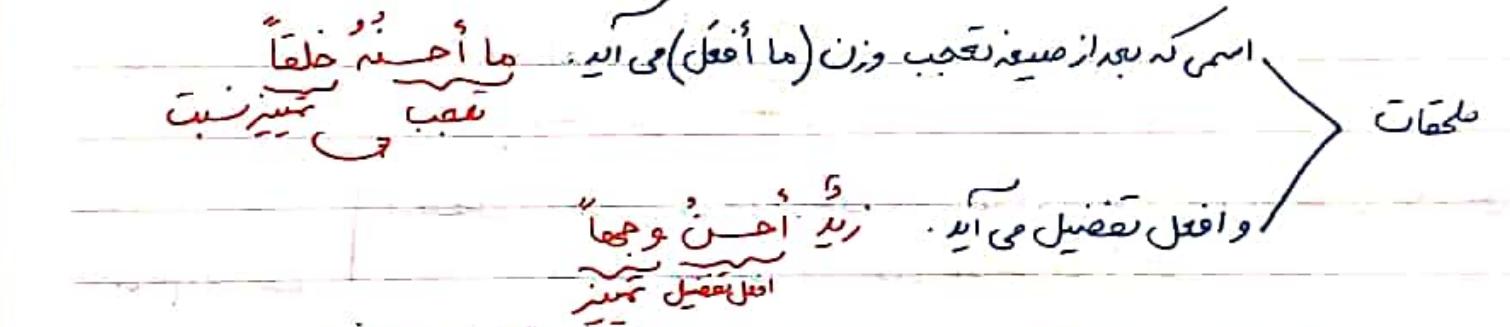 اسمی که بعد از صیغه تعجب وزن (ما أفعَل) می آید. ما أحسنُهُ خلقاً
تعجب تمییز نسبت
ملحقات
و افعل تفضیل می آید. زیدٌ أحسنُ وجهاً
افعل تفضیل تمییز